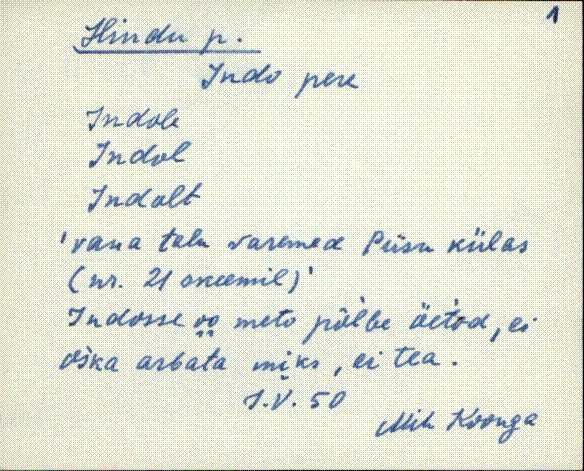 1
Hindu p.
Indo pere
Indole
Indol
Indolt
'vana talu varemed Piisu külas
(nr. 21 skeemil)'
Indosse oo meto põlbe äetod, ei
oška arbata miks, ei tea.
I.V. 50
Mih Koonga